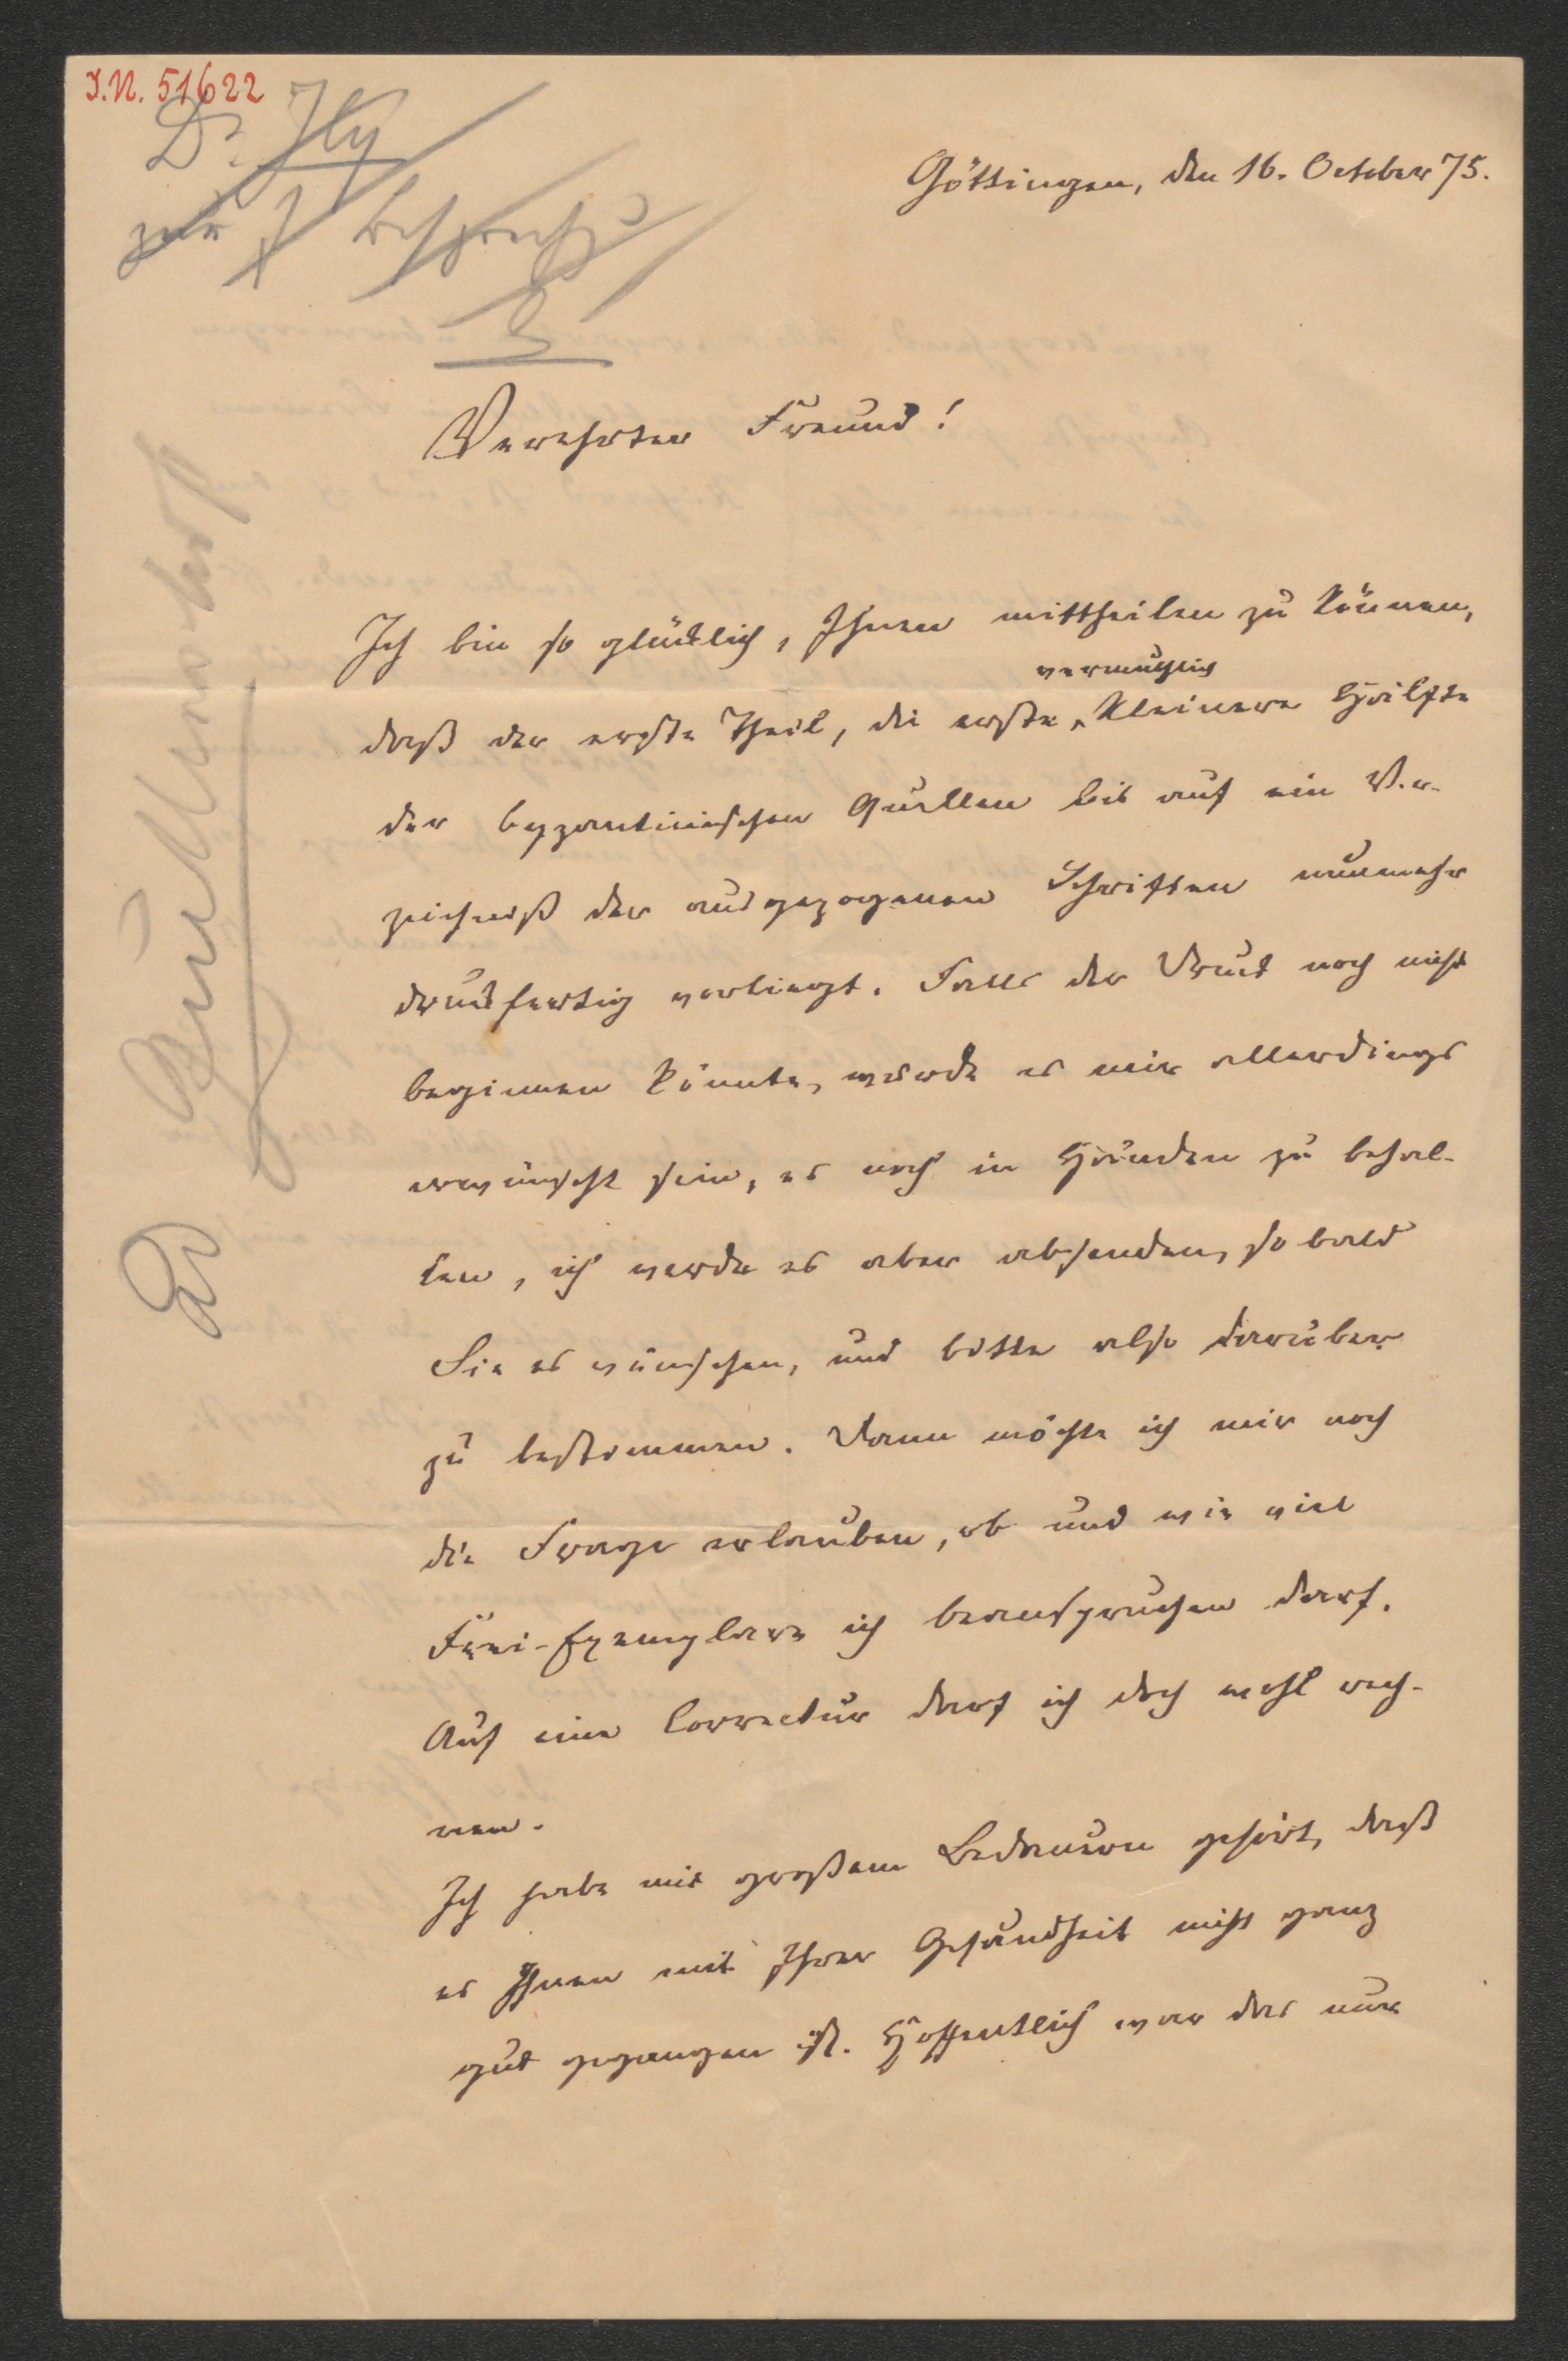 I.N. 51622
Dr. Ilg
zur
Göttingen, den 16. October 75.
Verehrter Freund!
Ich bin so glücklich, Ihnen mittheilen zu können,
vermuthlich
daß der erste Theil, die erste, kleinere Hälfte
der byzantinischen Quellen bis auf ein Ver-
zeichniß der ausgezogenen Schriften nunmehr
druckfertig vorliegt. Falls der Druck noch nicht
beginnen könnte, würde es mir allerdings
erwünscht sein, es noch in Händen zu behal-
ten, ich werde es aber absenden, so bald
Sie es wünschen, und bitte also darüber
zu bestimmen. Dann möchte ich mir noch
die Frage erlauben, ob und wie viel
Frei-Exemplare ich beanspruchen darf.
Auf eine Correctur darf ich doch wohl rech-
nen.
Ich habe mit großem Bedauern gehört, daß
es Ihnen mit Ihrer Gesundheit nicht ganz
gut gegangen ist. Hoffentlich war das nur